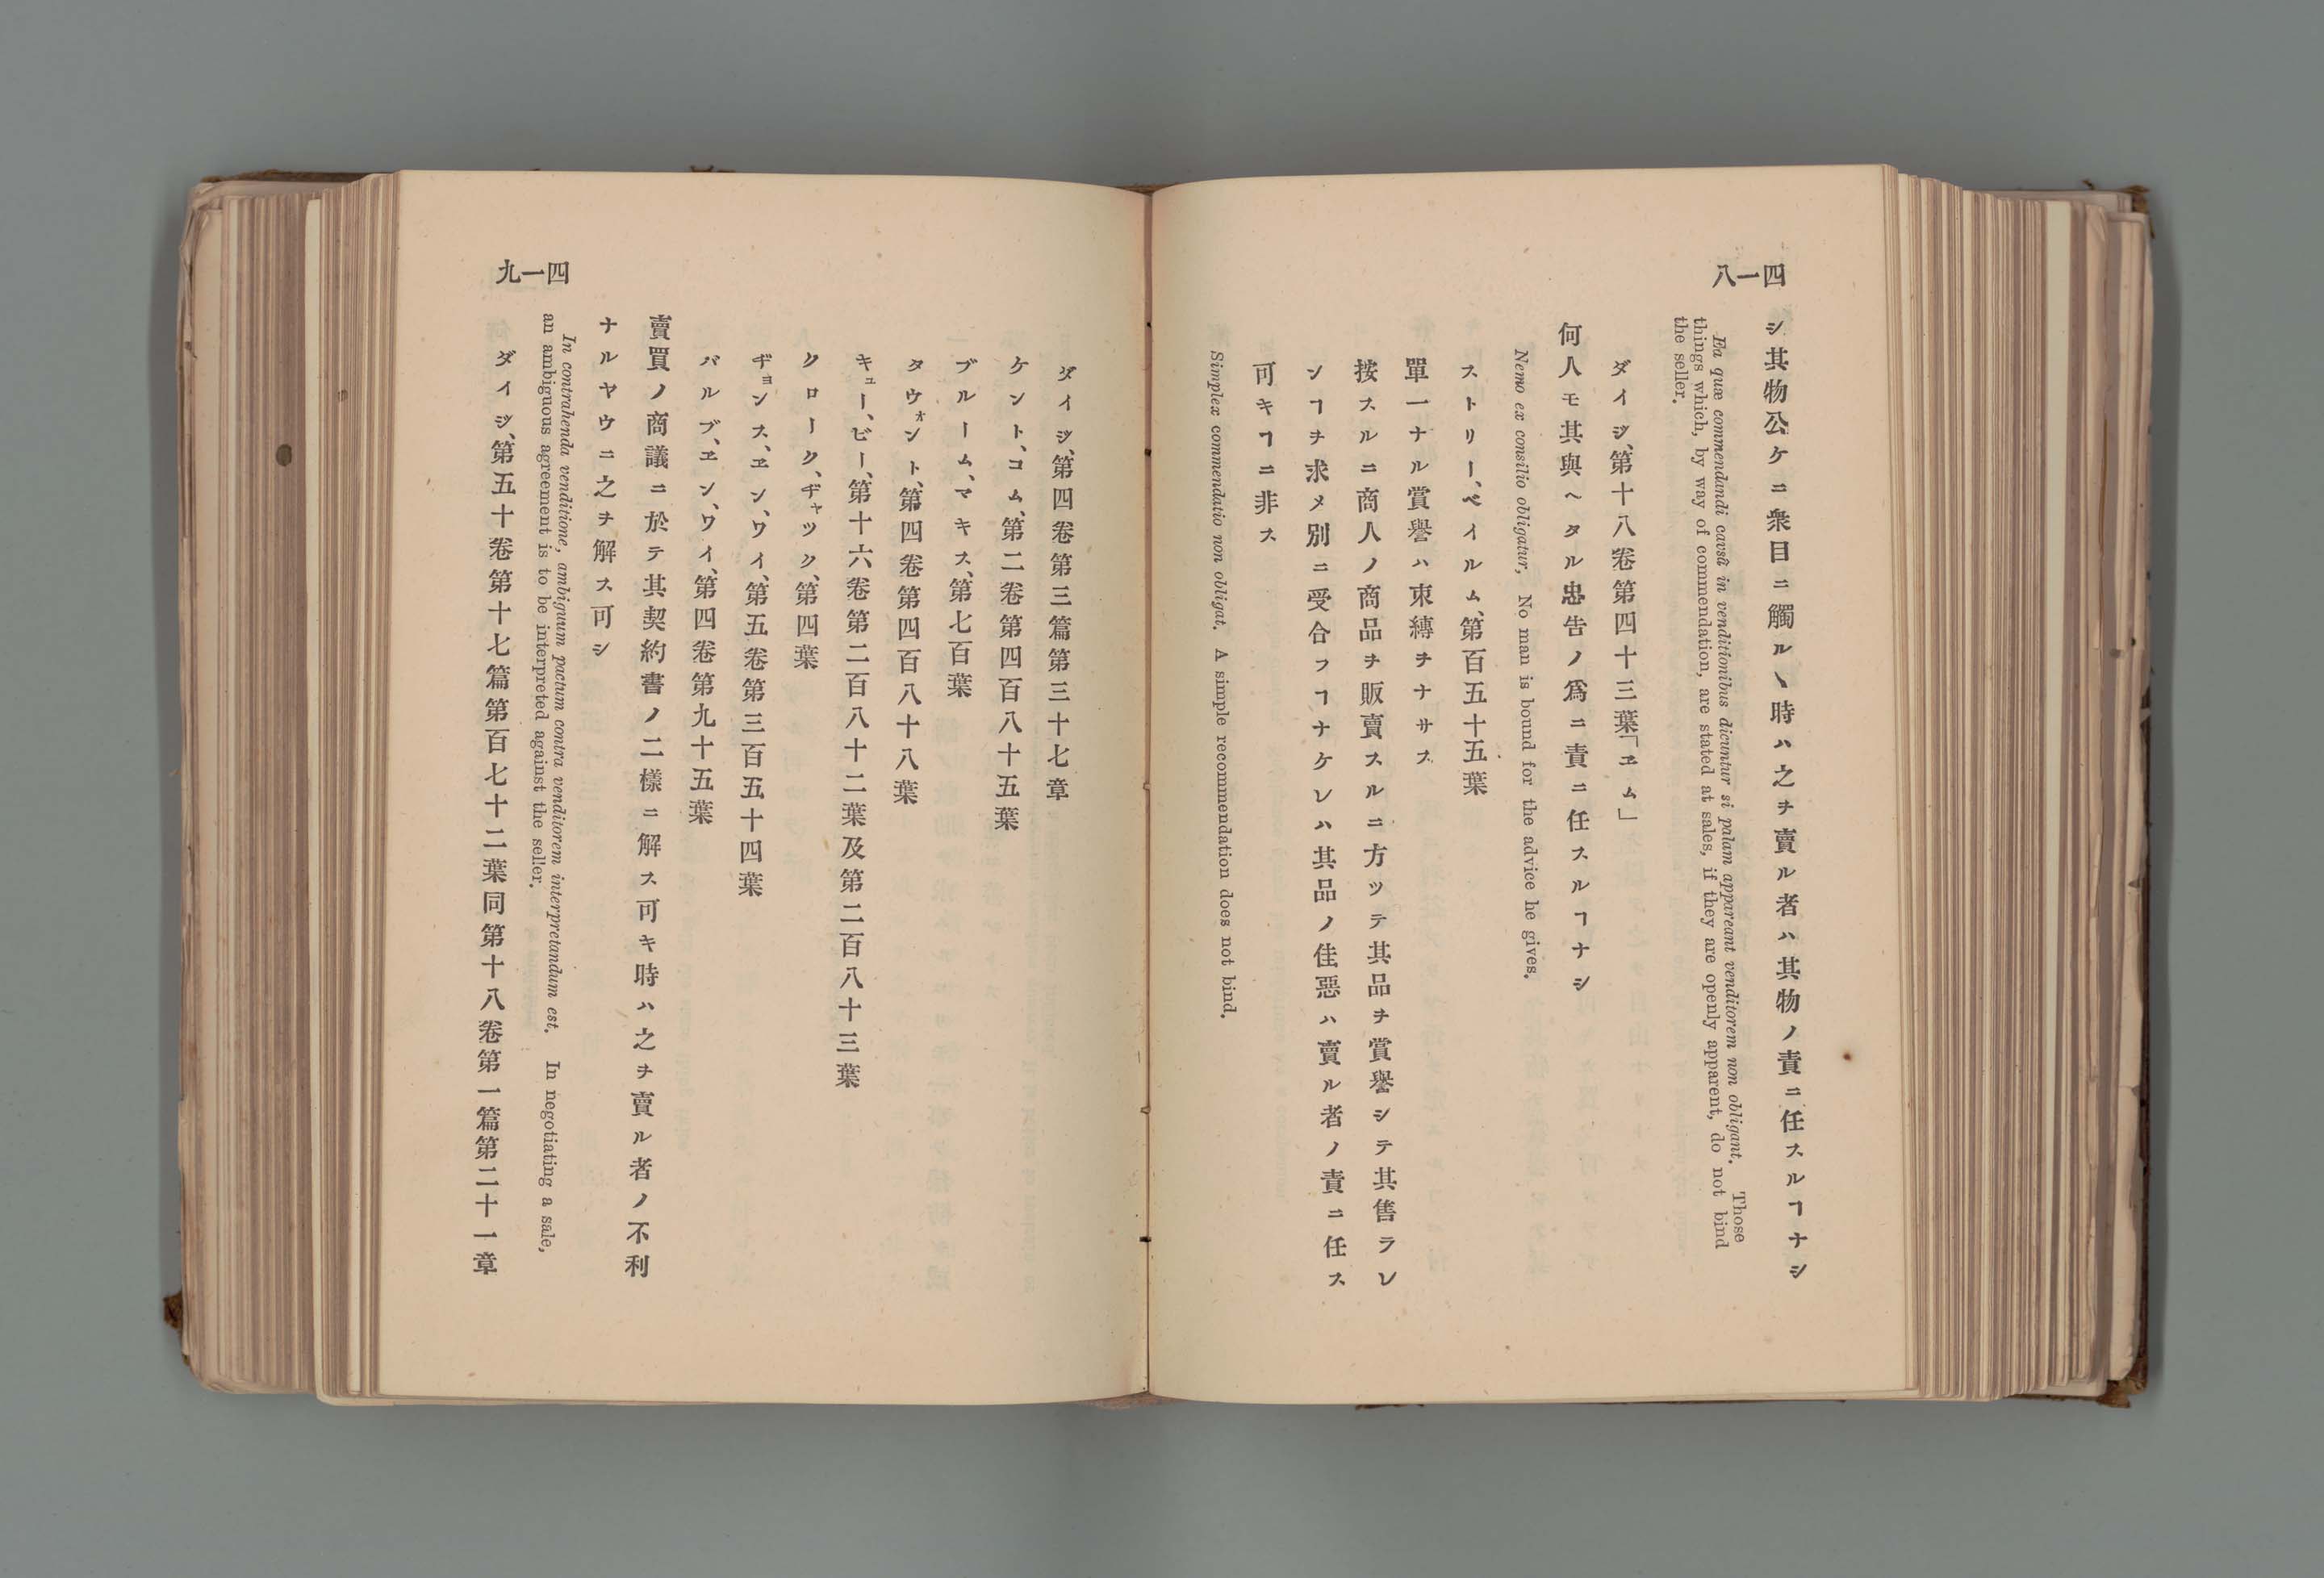 四一八
シ其物公ケニ衆目ニ觸ルヽ時ハ之ヲ賣ル者ハ其物ノ責ニ任スルヿナシ
Ea quæ commendandi causâ in venditionibus dicuntur si palam appareant venditorem non obligant. Those
things which, by way of commendation, are stated at sales, if they are openly apparent, do not bind
the seller.
ダイジ、第十八卷第四十三葉「ヱム」
何人モ其與ヘタル忠告ノ爲ニ責ニ任スルヿナシ
Nemo ex consilio obligatur, No man is bound for the advice he gives.
ストリー、ベイルム、第百五十五葉
單一ナル賞譽ハ束縛ヲナサス
按スルニ商人ノ商品ヲ販賣スルニ方ツテ其品ヲ賞譽シテ其售ラレ
ンヿヲ求メ別ニ受合フヿナケレハ其品ノ佳惡ハ賣ル者ノ責ニ任ス
可キヿニ非ス
Simplex commendatio non obligat. A simple recommendation does not bind.
四一九
ダイジ、第四卷第三篇第三十七章
ケント、コム、第二卷第四百八十五葉
ブルーム、マキス、第七百葉
タウォント、第四卷第四百八十八葉
キュー、ビー、第十六卷第二百八十二葉及第二百八十三葉
クローク、ヂャック、第四葉
ヂョンス、ヱン、ワイ、第五卷第三百五十四葉
バルブ、ヱン、ワイ、第四卷第九十五葉
賣買ノ商議ニ於テ其契約書ノ二樣ニ解ス可キ時ハ之ヲ賣ル者ノ不利
ナルヤウニ之ヲ解ス可シ
In contrahenda venditione, ambiguum pactum contra venditorem interpretandum est. In negotiating a sale,
an ambiguous agreement is to be interpreted against the seller.
ダイジ、第五十卷第十七篇第百七十二葉同第十八卷第一篇第二十一章